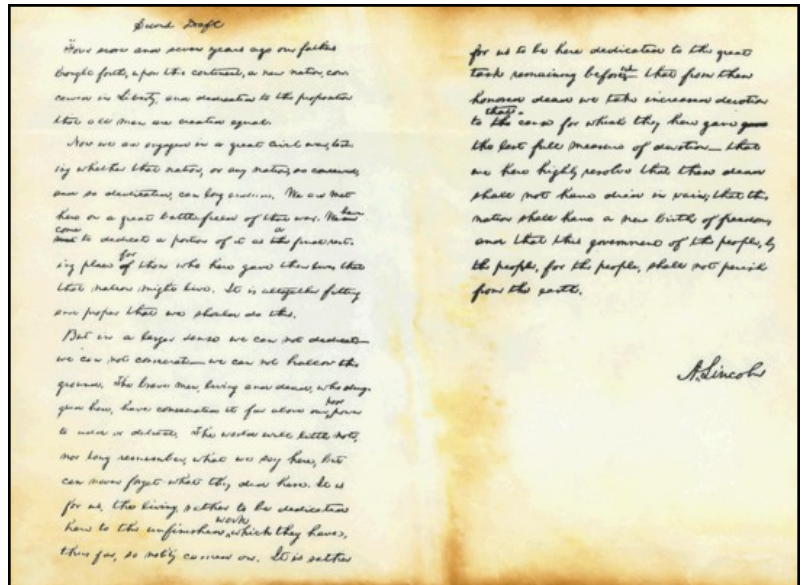 Second Draft
Four score and seven years ago our fathers
brought forth, upon this continent, a new nation, con-
ceived in Liberty, and dedicated to the proposition
that all men are created equal.
Now we are engaged in a great civil war, test-
ing whether that nation, or any nation, so conceived,
and so dedicated, can long endure. We are met
here on a great battlefield of that war. We have
come to dedicate a portion of it as a final rest-
ing place for those who here gave their lives that
that nation might live. It is altogether fitting
and proper that we should do this.
But in a larger sense we can not dedicate—
we can not consecrate— we can not hallow this
ground. The brave men, living and dead, who strug-
gled here, have consecrated it far above our poor power
to add or detract. The world will little note,
nor long remember, what we say here, but
can never forget what they did here. It is
for us, the living, rather to be dedicated
here to the unfinished work which they have,
thus far, so nobly carried on. It is rather
for us to be here dedicated to the great
task remaining before us— that from these
honored dead we take increased devotion
to that cause for which they here gave gave
the last full measure of devotion— that
we here highly resolve that these dead
shall not have died in vain; that this
nation shall have a new birth of freedom;
and that this government of the people, by
the people, for the people, shall not perish
from the earth.
A. Lincoln